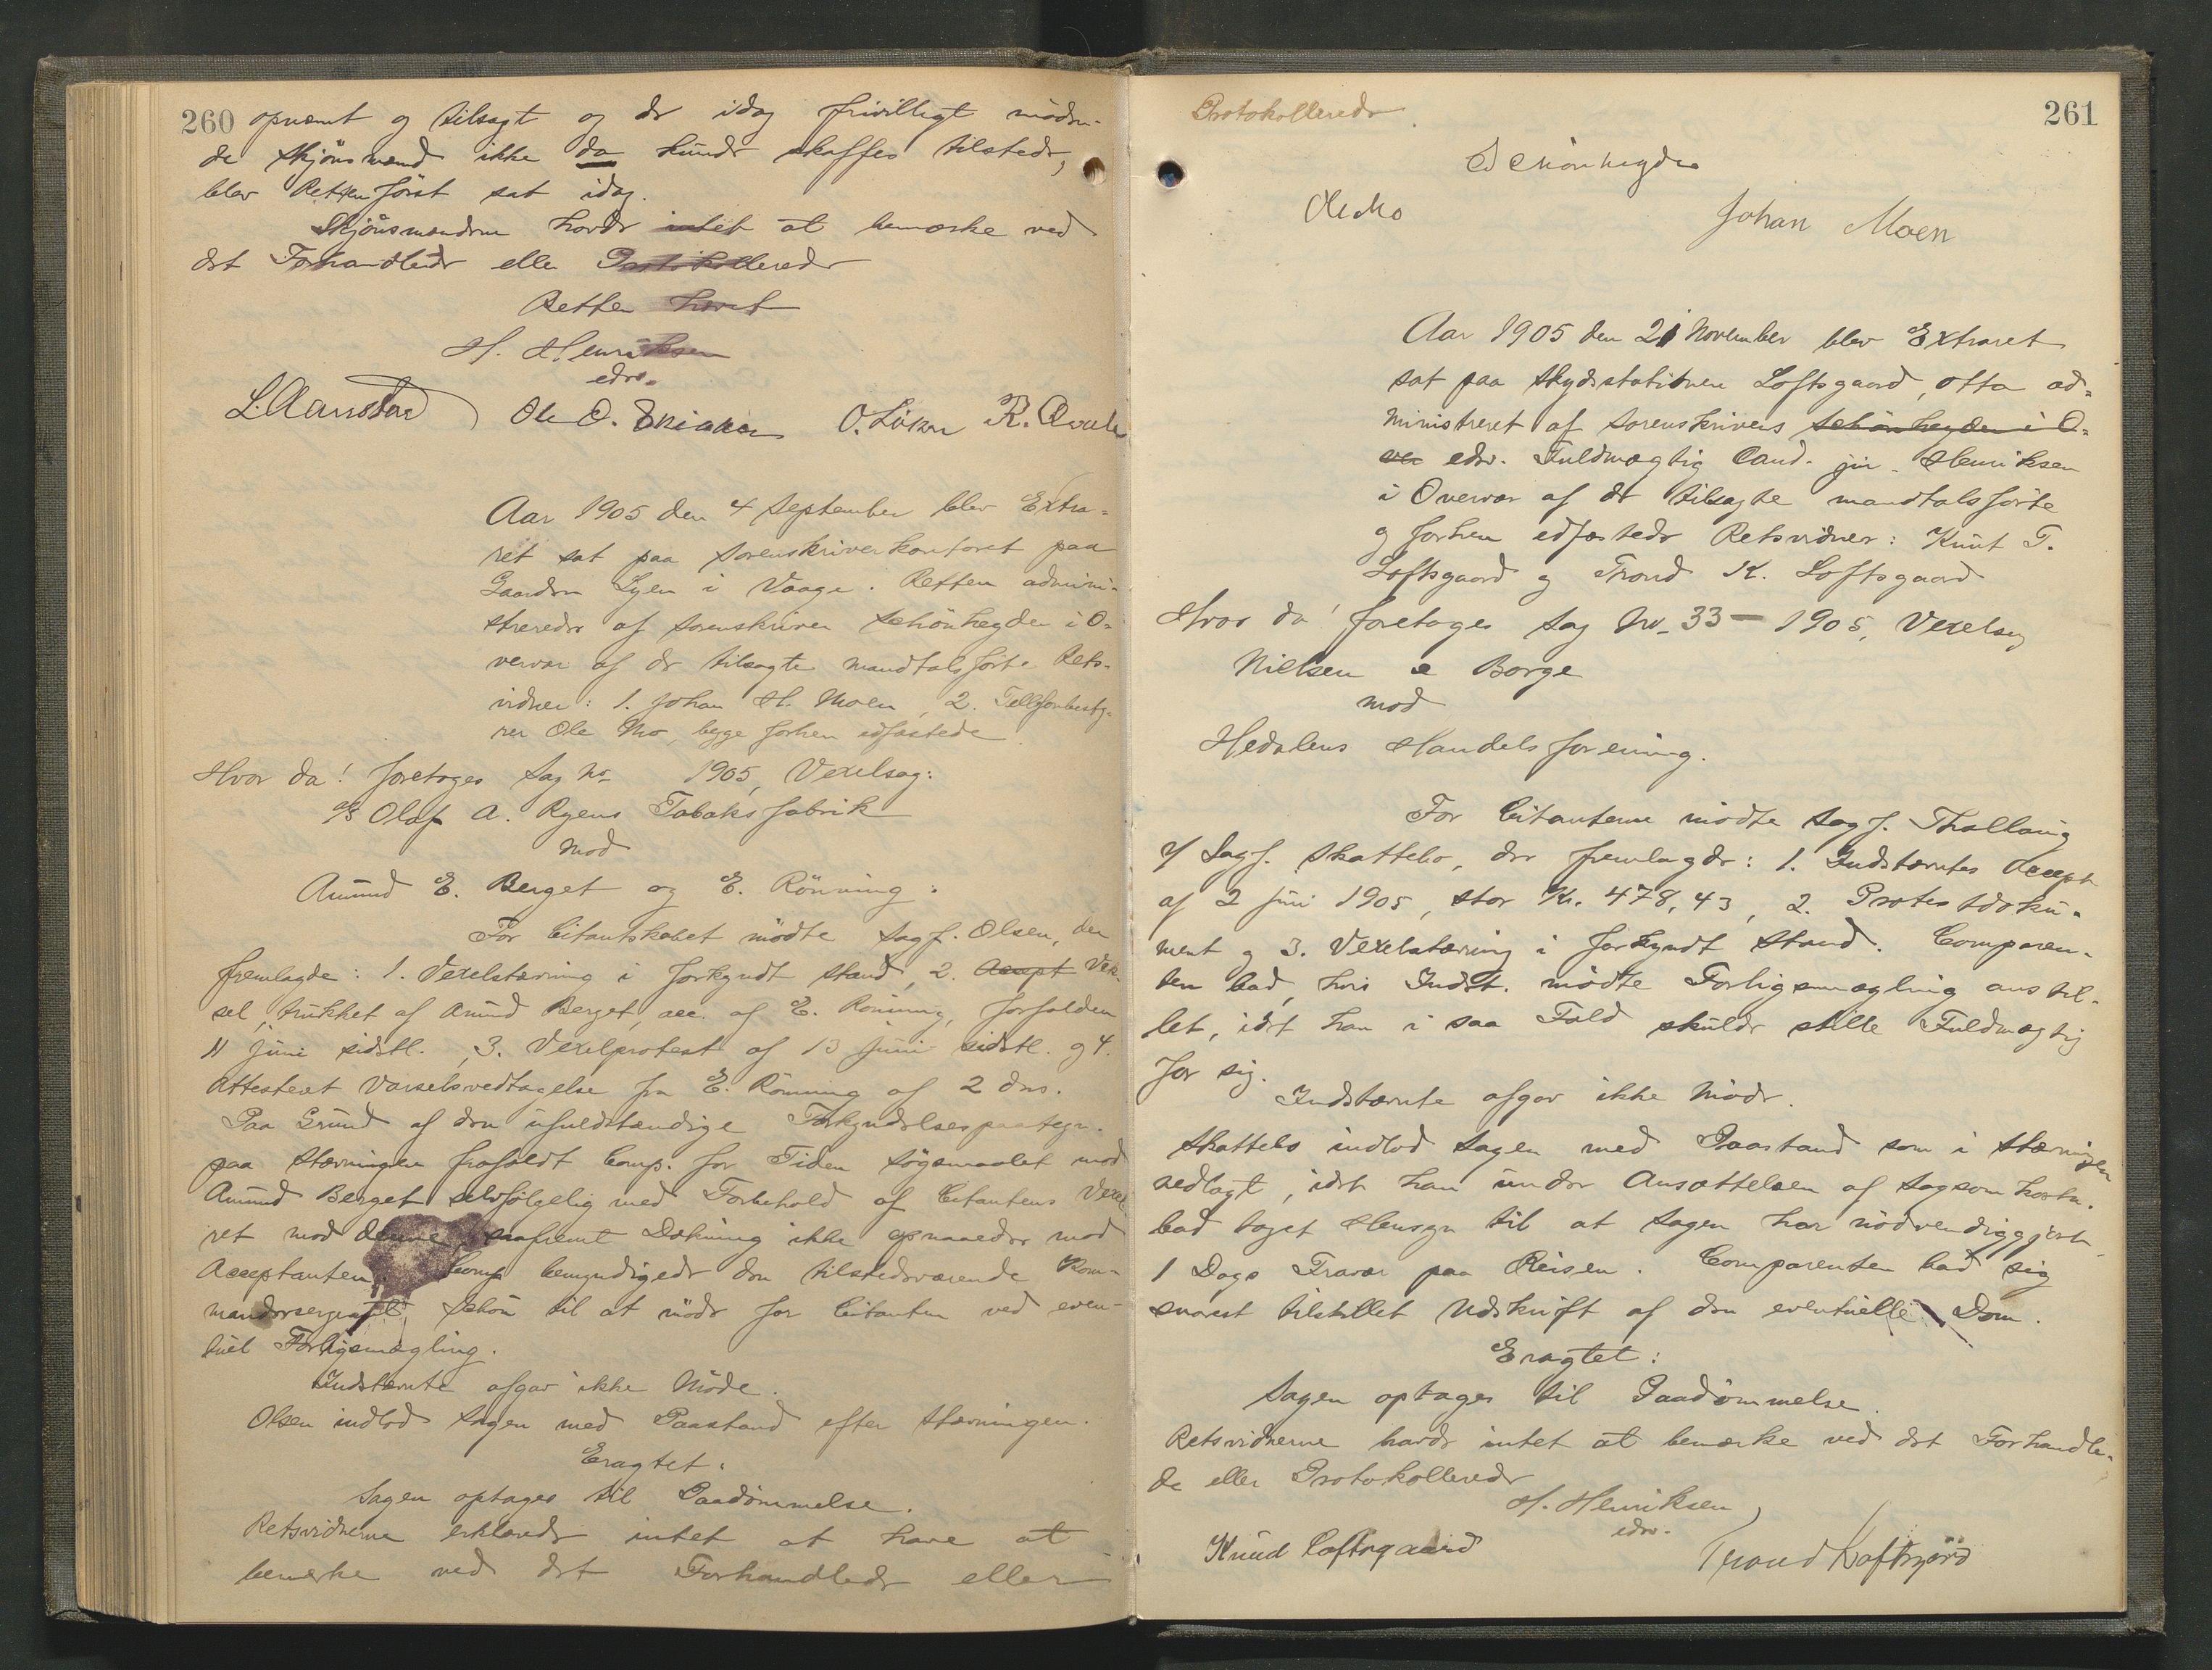 260 opnævnt og tilsagt og de idag frivilligt mødende
de Skjönsmænd ikke da kunde skaffes tilstede,
blev Retten först sat idag.
Skjönsmændene havde intet at bemærke ved
det Forhandlede eller Protokollerede
Retten hævet
H. Henriksen
edsv.
L. Aanstad Ole O. O. Löken R.
Aar 1905 den 4 September blev Extra=
ret sat paa Sorenskriverkontoret paa
Gaarden Syen i Vaage. Retten admini-
streredes af Sorenskriver Schönheyder i O=
vervær af de tilsagte mandtalsførte Rets-
vidner: 1. Johan H. Moen, 2. Telefonbesty=
rer Ole Mo, begge forhen edfæstede.
Hvor da! foretoges Sag No 1905, Vexelsag:
A/S Olaf A. Ryens Tobaksfabrik
mod
Amund E. Berget og E. Rönning.
For Citantskabet mödte Sagf. Olsen, der
fremlagde: 1. Vexelstævning i forkyndt stand, 2. Accept Vek-
sel, trukket af Amund Berget, acc. af E. Rönning, forfalden
11 juni sidstl., 3. Vexelprotest af 13 juni sidstl. og 4.
Attesteret Varselsvedtagelse fra E. Rönning af 2 dns.
Paa Grund af den ufuldstændige Forkyndelsespaategn.
paa Stævningen frafaldt Comp. for Tiden Sögsmaalet mod
Amund Berget selvfölgelig med Forbehold af Citantens Vexel
ret mod denne, saafremt Dækning ikke opnaaedes mod
Acceptanten. Comp. bemyndigede den tilstedeværende Kom-
mandersergeant Schön til at möde for Citanten ved even-
tuel Forligsmægling.
Indstævnte afgav ikke Möde.
Olsen indlod Sagen med Paastand efter Stævningen.
Eragtet:
Sagen optages til Paadömmelse.
Retsvidnerne erklærede intet at have at
bemerke ved det Forhandlede eller
261
Protokollerede.
Schönheyder
Ole Mo Johan Moen
Aar 1905 den 21 November blev Extraret
sat paa Skydsstationen Loftsgaard, Otta ad=
ministreret af Sorenskrivers Schönheyder i O=
ver edsv. Fuldmægtig Cand. jur. Henriksen
i Overvær af de tilsagte mandtalsförte
og forhen edfæstede Retsvidner: Knut T.
Loftsgaard og Trond K. Loftsgaard
Hvor da! foretoges Sag No 33 – 1905, Vexelsag
Nielsen & Borge
mod
Hedalens Handelsforening.
For Citanterne mödte Sagf. Thallaug
f/ Sagf. Skattebo, der fremlagde: 1. Indstævntes Accept
af 2 juni 1905, stor Kr. 478,43, 2. Protestdoku-
ment og 3. Vexelstævning i forkyndt Stand. Comparen-
ten bad, hvis Indst. mödte Forligsmægling anstil-
let, idet han i saa Fald skulde stille Fuldmægtig
for sig.
Indstævnte afgav ikke Möde.
Skattebo indlod Sagen med Paastand som i Stævningen
nedlagt, idet han under Ansættelsen af Sagsomkostn.
bad taget Hensyn til at Sagen har nödvendiggjort
1 Dags Fravær paa Reisen. Comparenten bad sig
snarest tilstillet Udskrift af den eventuelle Dom.
Eragtet:
Sagen optages til Paadömmelse.
Retsvidnerne havde intet at bemærke ved det Forhandle-
de eller Protokollerede
H. Henriksen
edsv.
Knud Loftsgaard Trond Loftsgård